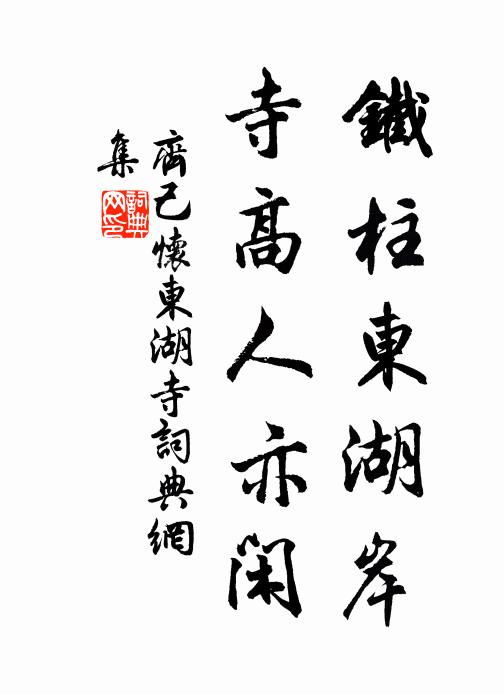 鐵柱東湖岸
寺高人亦閑
齊己懷東湖寺詞典網
集
詞典
网印